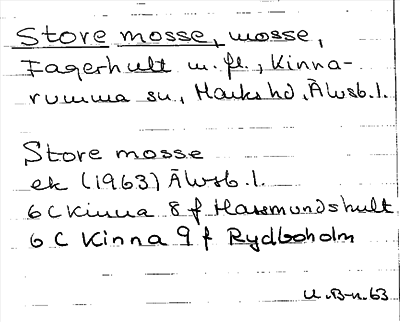 Store mosse, mosse,
Fagerhult m. fl., Kinna-
rumma sn., Marks hd, Älvsb. l.
Store mosse
ek (1963) Älvsb. l.
6 C Kinna 8 f Hassmundshult
6 C Kinna 9 f Rydboholm
U. B-n. 63